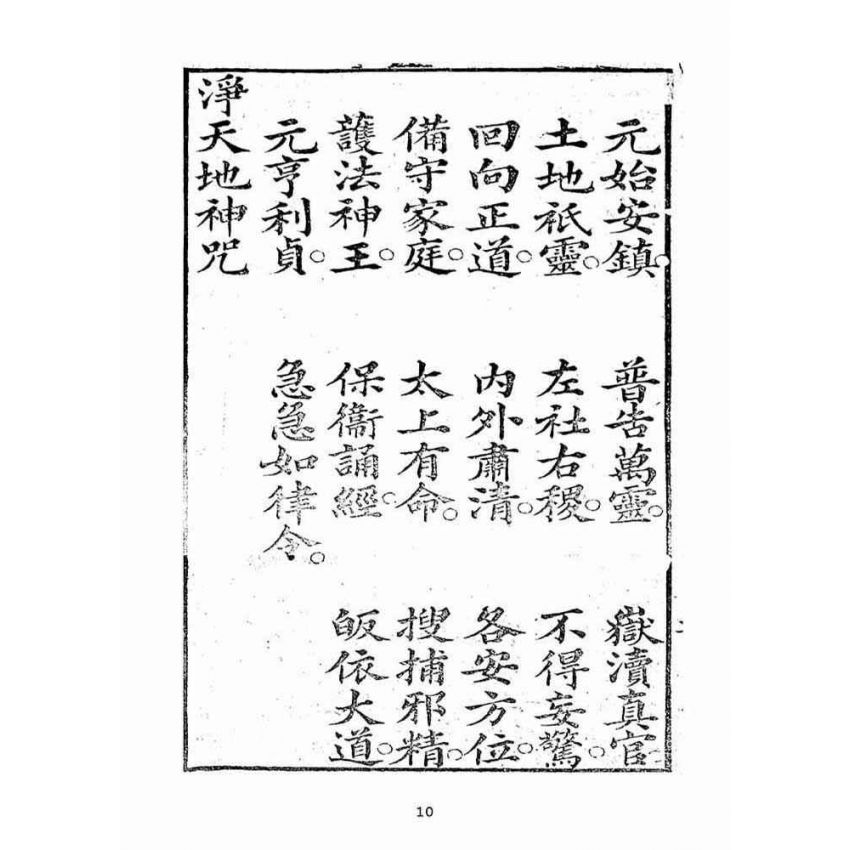 元始安鎮。普告萬靈。嶽瀆真官
土地祇靈。左社右稷。不得妄驚。
回向正道。內外肅清。各安方位。
備守家庭。太上有命。搜捕邪精。
護法神王。保衞誦經。皈依大道。
元亨利貞。急急如律令。
淨天地神咒
10